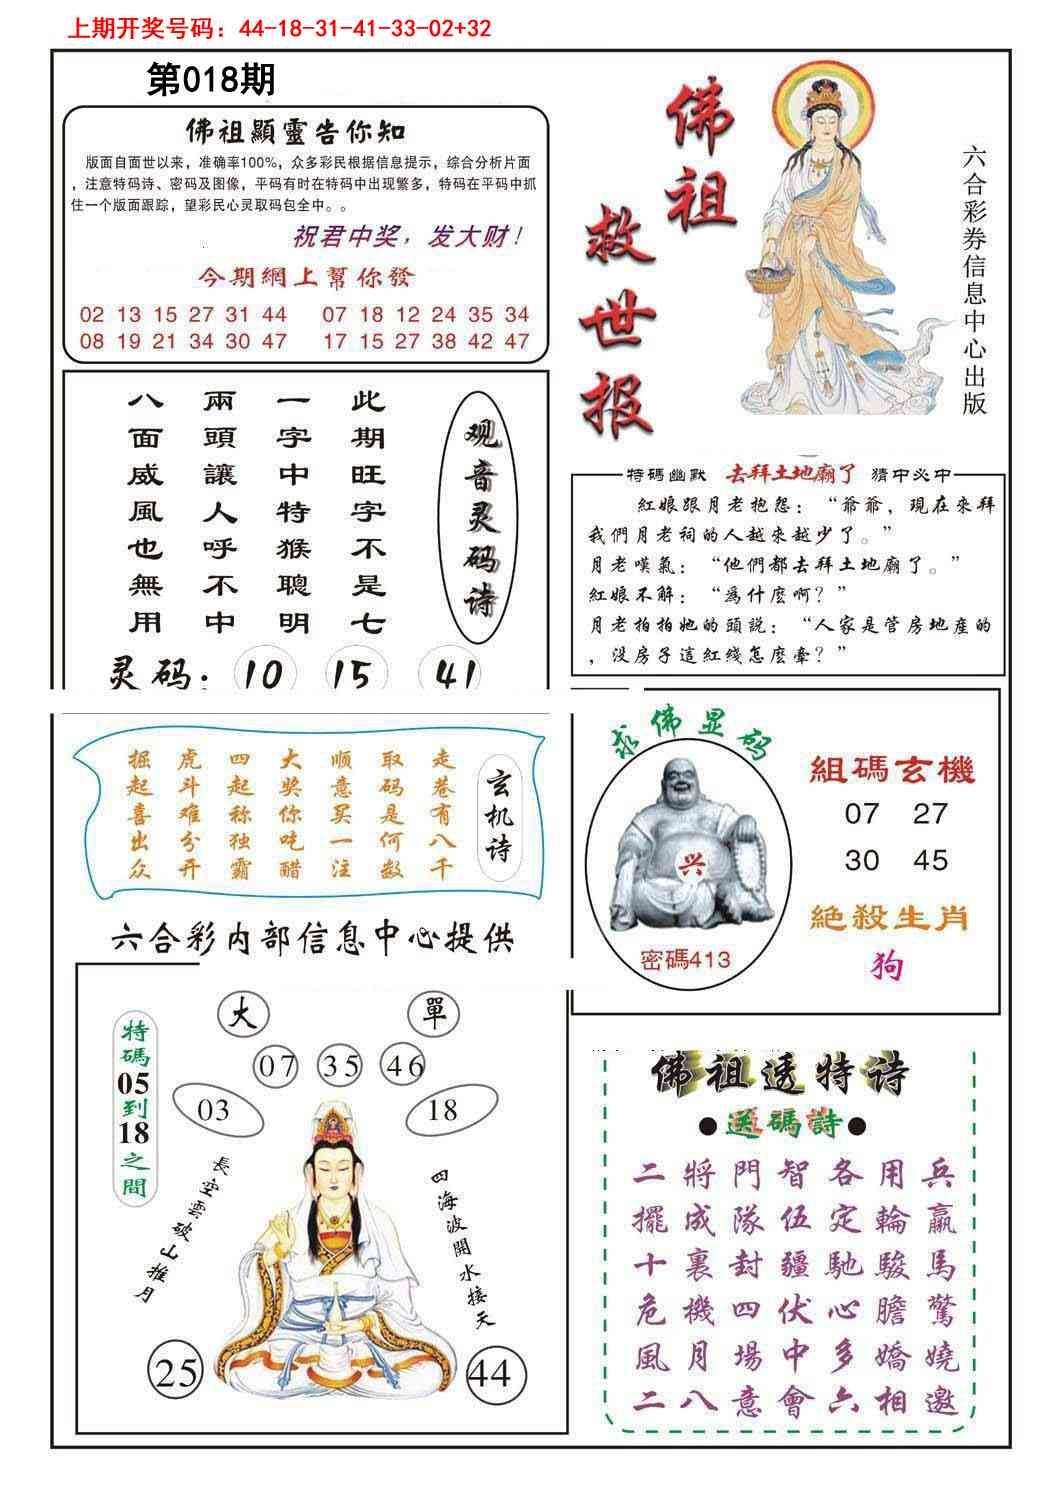 上期开奖号码：44-18-31-41-33-02+32
第018期
佛祖顯靈告你知
版面自面世以来，准确率100%，众多彩民根据信息提示，综合分析片面
，注意特码诗、密码及图像，平码有时在特码中出现繁多，特码在平码中抓
住一个版面跟踪，望彩民心灵取码包全中。。
祝君中奖，发大财！
今期網上幫你發
02 13 15 27 31 44 07 18 12 24 35 34
08 19 21 34 30 47 17 15 27 38 42 47
佛祖救世报
六合彩券信息中心出版
观音灵码诗
此期旺字不是七
一字中特猴聰明
兩頭讓人呼不中
八面威風也無用
灵码：10 15 41
特碼幽默 去拜土地廟了 猜中必中
紅娘跟月老抱怨：“爺爺，現在來拜
我們月老祠的人越來越少了。”
月老嘆氣：“他們都去拜土地廟了。”
紅娘不解：“爲什麼啊？”
月老拍拍她的頭說：“人家是管房地産的
，沒房子這紅綫怎麼牽？”
玄机诗
走巷有八千
取码是何数
顺意买一注
大奖你吃醋
四起称独霸
虎斗难分开
掘起喜出众
求佛显码
兴
密碼413
組碼玄機
07 27
30 45
絕殺生肖
狗
六合彩内部信息中心提供
特碼05到18之間
大 單
07 35 46
03 18
長空雲破山推月
四海波開水接天
25 44
佛祖透特诗
●送碼詩●
二將門智各用兵
擺成隊伍定輪贏
十裏封疆馳駿馬
危機四伏心膽驚
風月場中多嬌嬈
二八意會六相邀